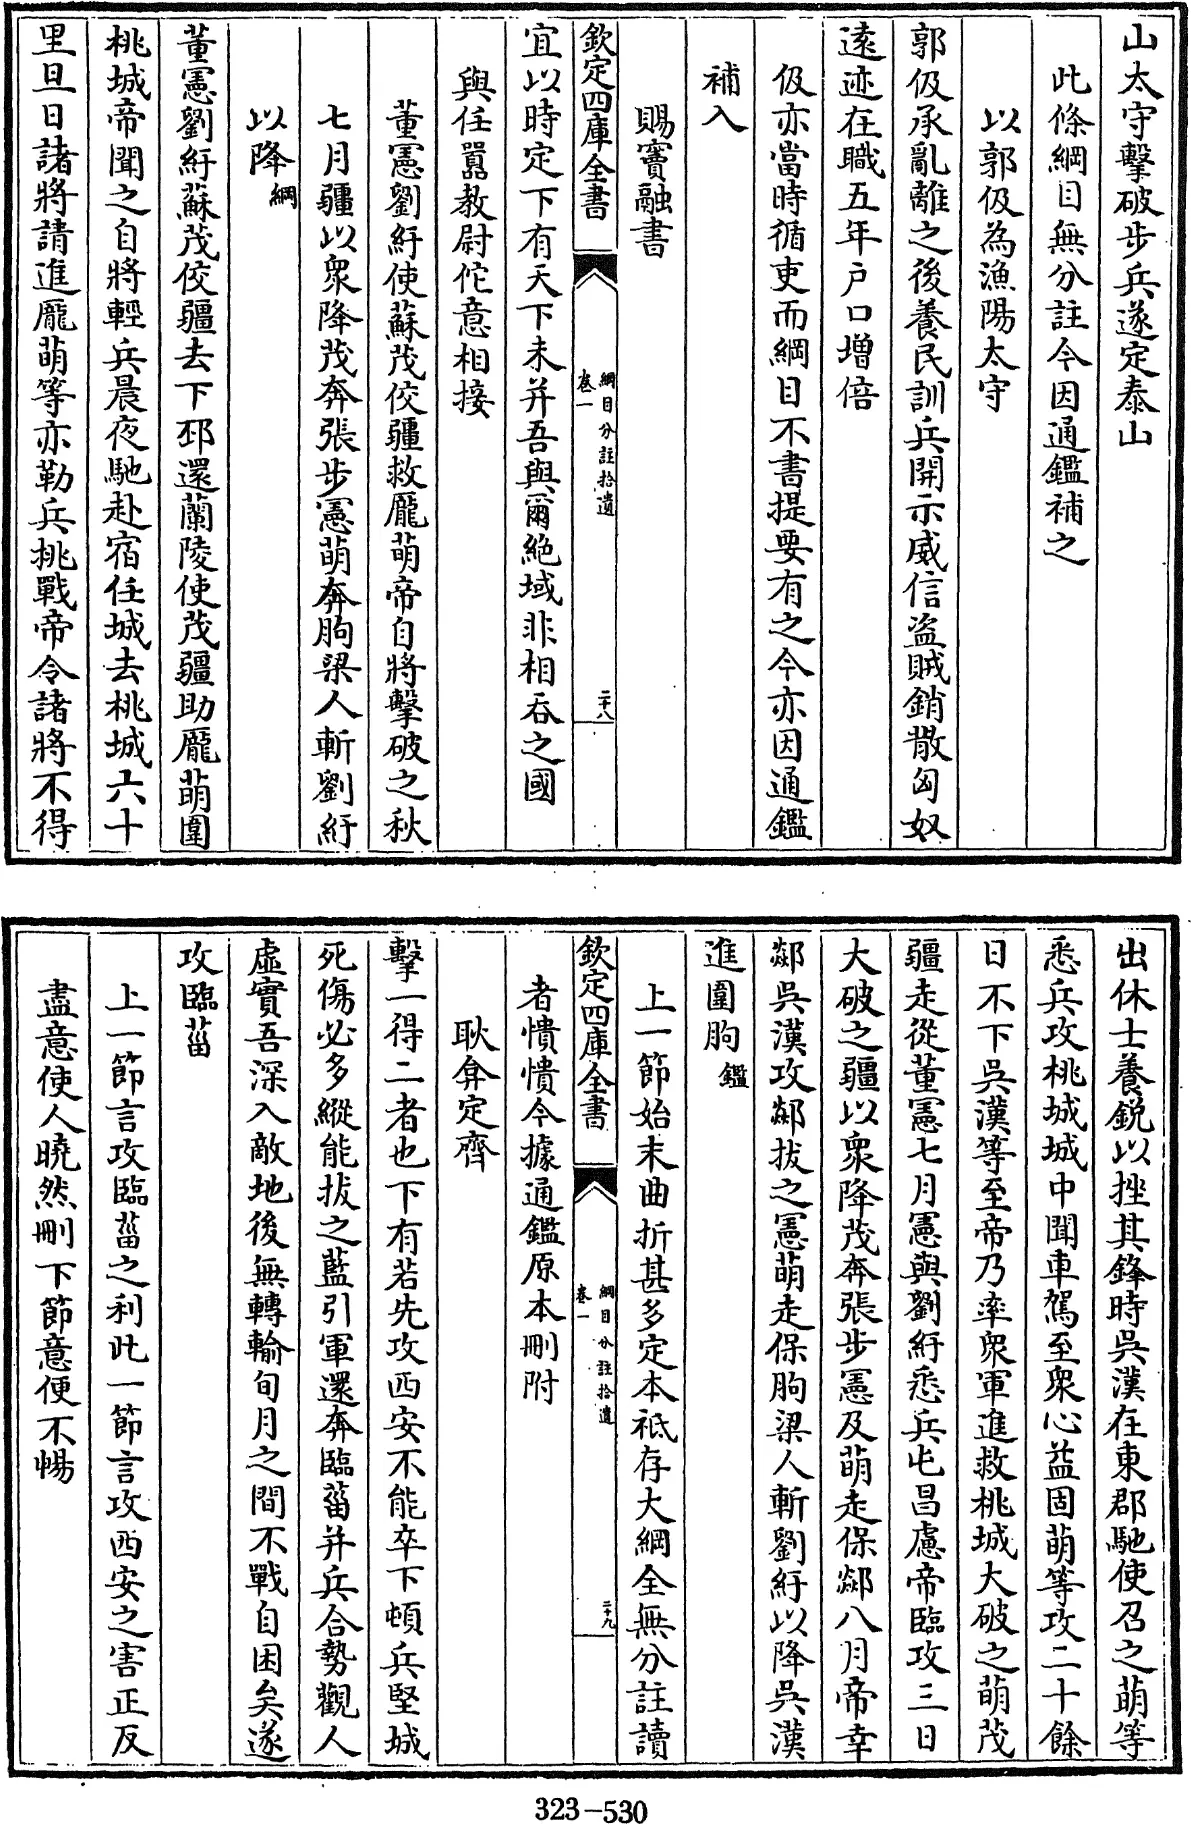 山太守擊破步兵遂定泰山
此條綱目無分註今因通鑑補之
以郭伋為漁陽太守
郭伋承亂離之後養民訓兵開示威信盗賊銷散匈奴
逺迹在職五年户口增倍
伋亦當時循吏而綱目不書提要有之今亦因通鑑
補入
賜竇融書
欽定四庫全書
綱目分註拾遺
卷一
二十八
宜以時定下有天下未并吾與爾絶域非相吞之國
與任囂教尉佗意相接
董憲劉紆使蘇茂佼疆救龐萌帝自將擊破之秋
七月疆以衆降茂奔張步憲萌奔朐梁人斬劉紆
以降綱
董憲劉紆蘇茂佼疆去下邳還蘭陵使茂疆助龐萌圍
桃城帝聞之自將輕兵晨夜馳赴宿任城去桃城六十
里旦日諸將請進龐萌等亦勒兵挑戰帝令諸將不得
出休士養鋭以挫其鋒時吳漢在東郡馳使召之萌等
悉兵攻桃城城中聞車駕至衆心益固萌等攻二十餘
日不下吳漢等至帝乃率衆軍進救桃城大破之萌茂
疆走從董憲七月憲與劉紆悉兵屯昌慮帝臨攻三日
大破之疆以衆降茂奔張步憲及萌走保郯八月帝幸
郯吳漢攻郯拔之憲萌走保朐梁人斬劉紆以降吳漢
進圍朐鑑
上一節始末曲折甚多定本祗存大綱全無分註讀
欽定四庫全書
綱目分註拾遺
卷一
二十九
者憒憒今據通鑑原本刪附
耿弇定齊
擊一得二者也下有若先攻西安不能卒下頓兵堅城
死傷必多縱能拔之藍引軍還奔臨菑并兵合勢觀人
虛實吾深入敵地後無轉輸旬月之間不戰自困矣遂
攻臨菑
上一節言攻臨菑之利此一節言攻西安之害正反
盡意使人曉然刪下節意便不暢
323-530